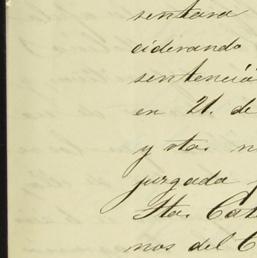 sentara
ciderando
sentenciá
en 21. de
y vta. n
juzgada
Sta. Cat
mos del C